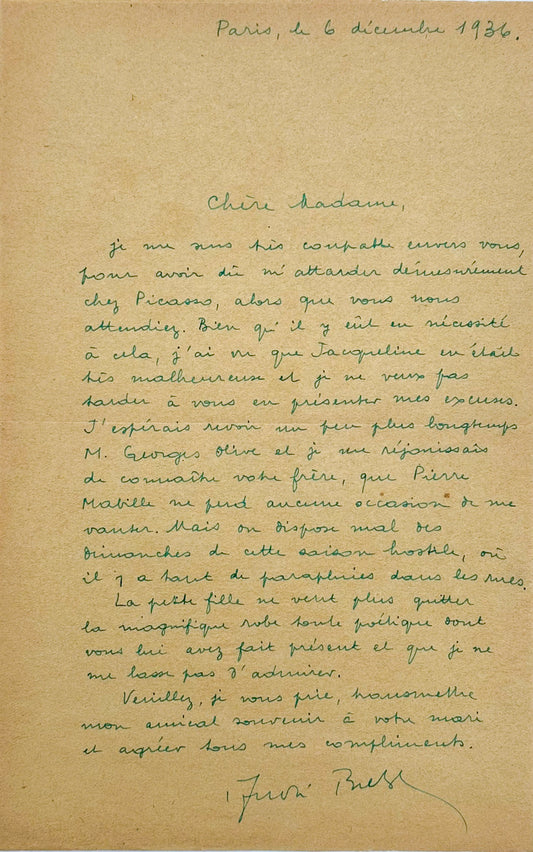 Paris, le 6 décembre 1936.
Chère Madame,
je me sens très coupable envers vous,
pour avoir dû m'attarder démesurément
chez Picasso, alors que vous nous
attendiez. Bien qu'il y eût eu nécessité
à cela, j'ai vu que Jacqueline en était
très malheureuse et je ne veux pas
tarder à vous en présenter mes excuses.
J'espérais revoir un peu plus longtemps
M. Georges Olive et je me réjouissais
de connaître votre frère, que Pierre
Mabille ne perd aucune occasion de me
vanter. Mais on dispose mal des
dimanches de cette saison hostile, où
il y a tant de parapluies dans les rues.
La petite fille ne veut plus quitter
la magnifique robe toute poétique dont
vous lui avez fait présent et que je ne
me lasse pas d'admirer.
Veuillez, je vous prie, transmettre
mon amical souvenir à votre mari
et agréer tous mes compliments.
André Breton